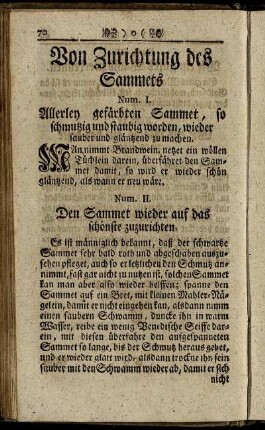 70
Von Zurichtung des
Sammets
Num. I.
Allerley gefärbten Sammet, so
schmutzig und staubig worden, wieder
sauber und gläntzend zu machen.
MAn nimmt Brandwein, netzet ein wöllen
Tüchlein darein, überfähret den Sam-
met damit, so wird er wieder schön
gläntzend, als wann er neu wäre.
Num. II.
Den Sammet wieder auf das
schönste zuzurichten.
Es ist männiglich bekannt, daß der schwartze
Sammet sehr bald roth und abgeschaben auszu-
sehen pfleget, auch so er letzlichen den Schmutz an-
nimmt, fast gar nicht zu nutzen ist, solchen Sammet
kan man aber also wieder helffen; spanne den
Sammet auf ein Bret, mit kleinen Mahler-Nä-
gelein, damit er nicht eingehen kan, alsdann nimm
einen saubern Schwamm, duncke ihn in warm
Wasser, reibe ein wenig Venedische Seiffe dar-
ein, mit diesen überfahre den aufgespanneten
Sammet so lange, bis der Schmutz heraus gehet,
und er wieder glatt wird, alsdann trockne ihn fein
sauber mit den Schwamm wieder ab, damit er sich
nicht